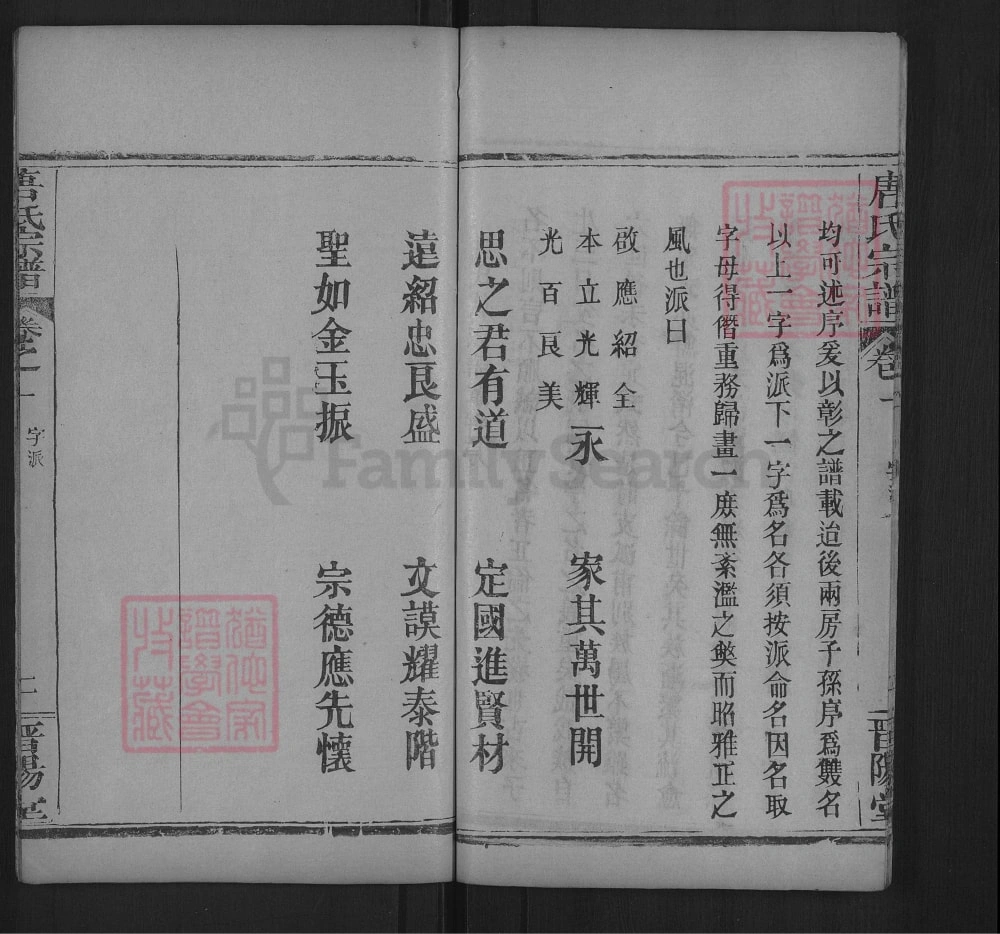 唐氏宗譜 卷一
晉陽堂
均可述序爰以彰之譜載迨後兩房子孫序爲雙名
以上一字爲派下一字爲名各須按派命名因名取
字母得僭重務歸畫一庶無紊濫之獘而昭雅正之
風也派曰
啟應紹全
本立光輝永 家其萬世開
光百良美
思之君有道 定國進賢材
遠紹忠良盛 文謨耀泰階
聖如金玉振 宗德應先懷
唐氏宗譜 卷之一 字派 二 晉陽堂
猶他家譜學會收藏
猶他家譜學會收藏
FamilySearch